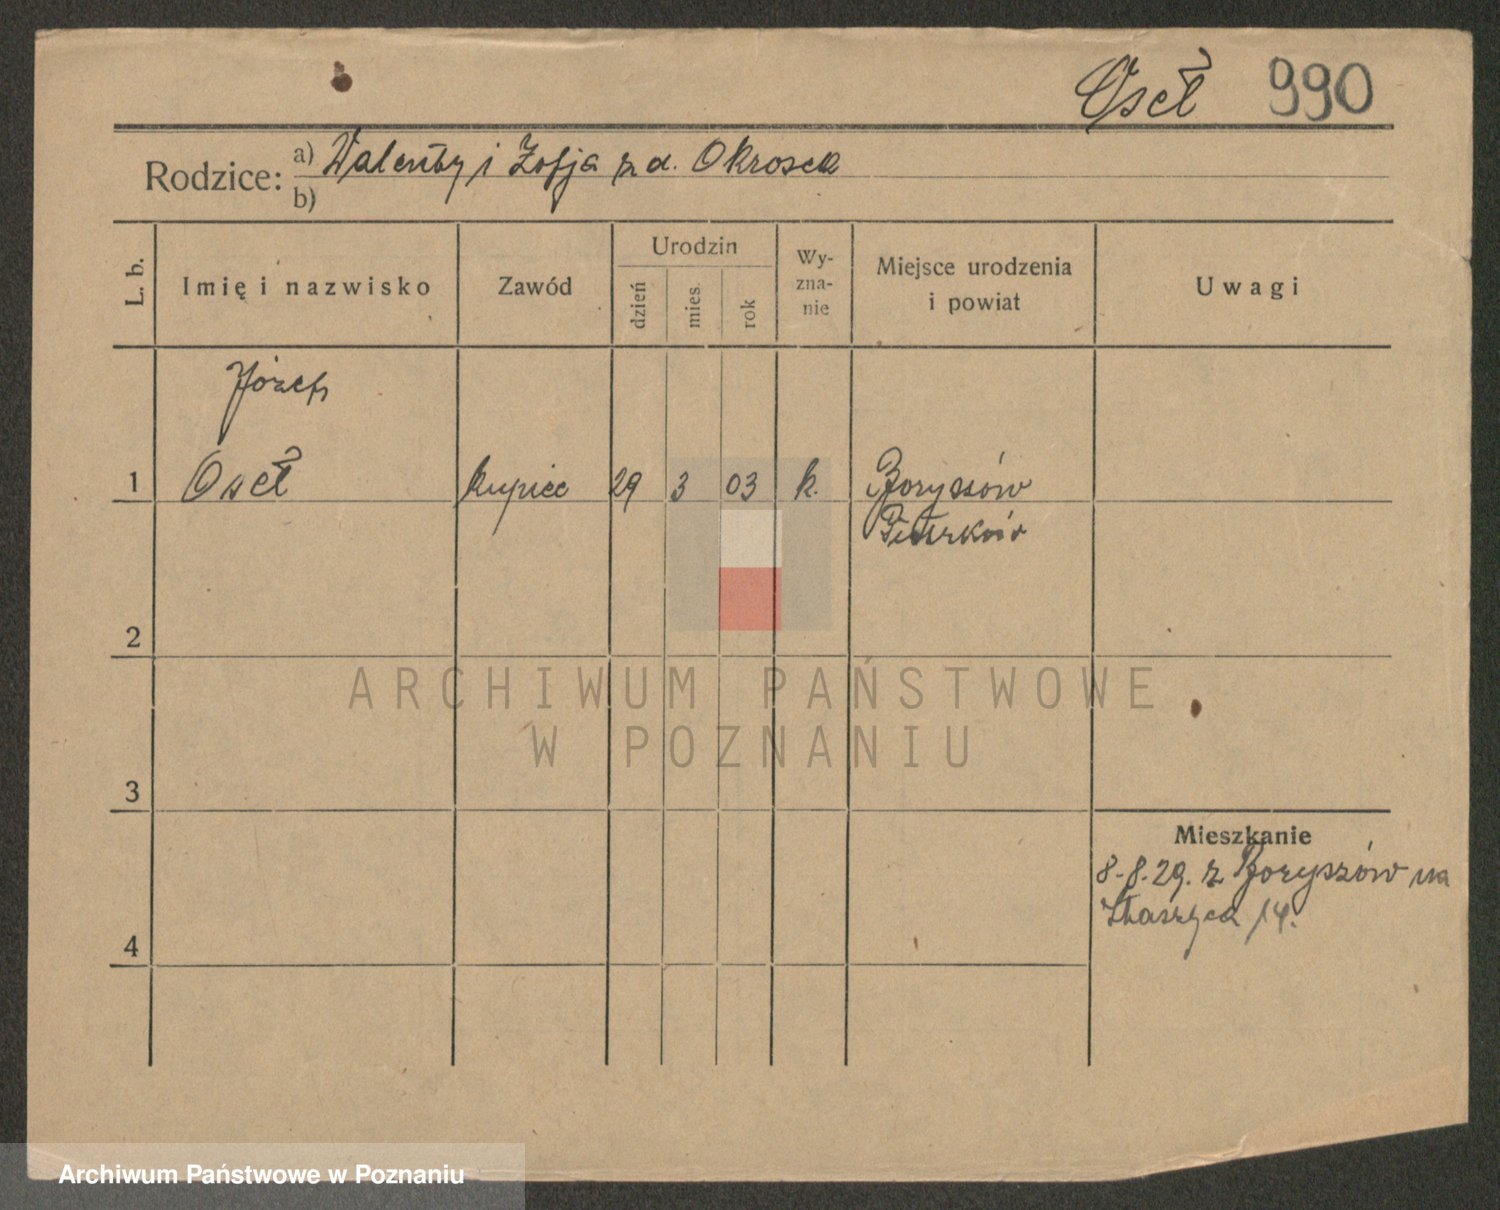 Oseł 990
Rodzice: a) Walenty i Zofja z d. Okrosek
b)
L. b. Imię i nazwisko Zawód Urodzin dzień mies. rok Wyznanie Miejsce urodzenia i powiat Uwagi
Józef
1 Oseł kupiec 29 3 03 k. Boryszów
Piotrków
2
3
Mieszkanie
8-8.29. z Boryszów na
Staszyca 14.
4
ARCHIWUM PAŃSTWOWE
W POZNANIU
Archiwum Państwowe w Poznaniu